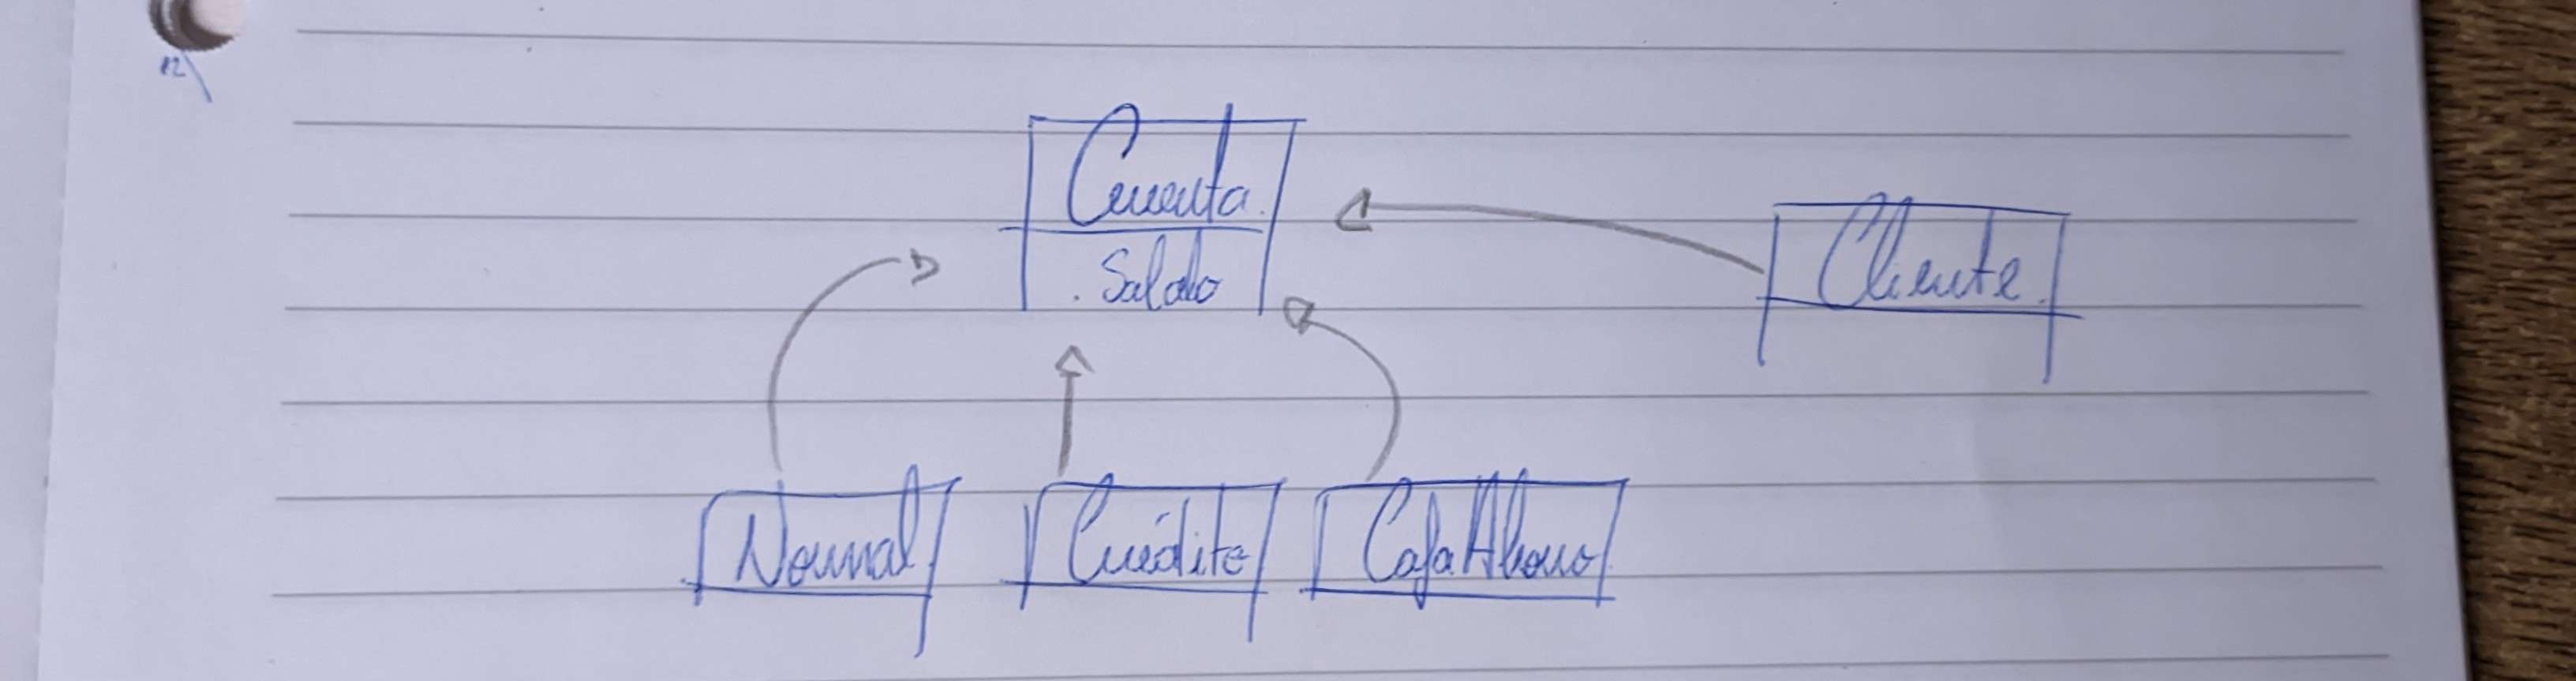 Cuenta
Saldo
Cliente
Normal
Crédito
Caja Ahorro